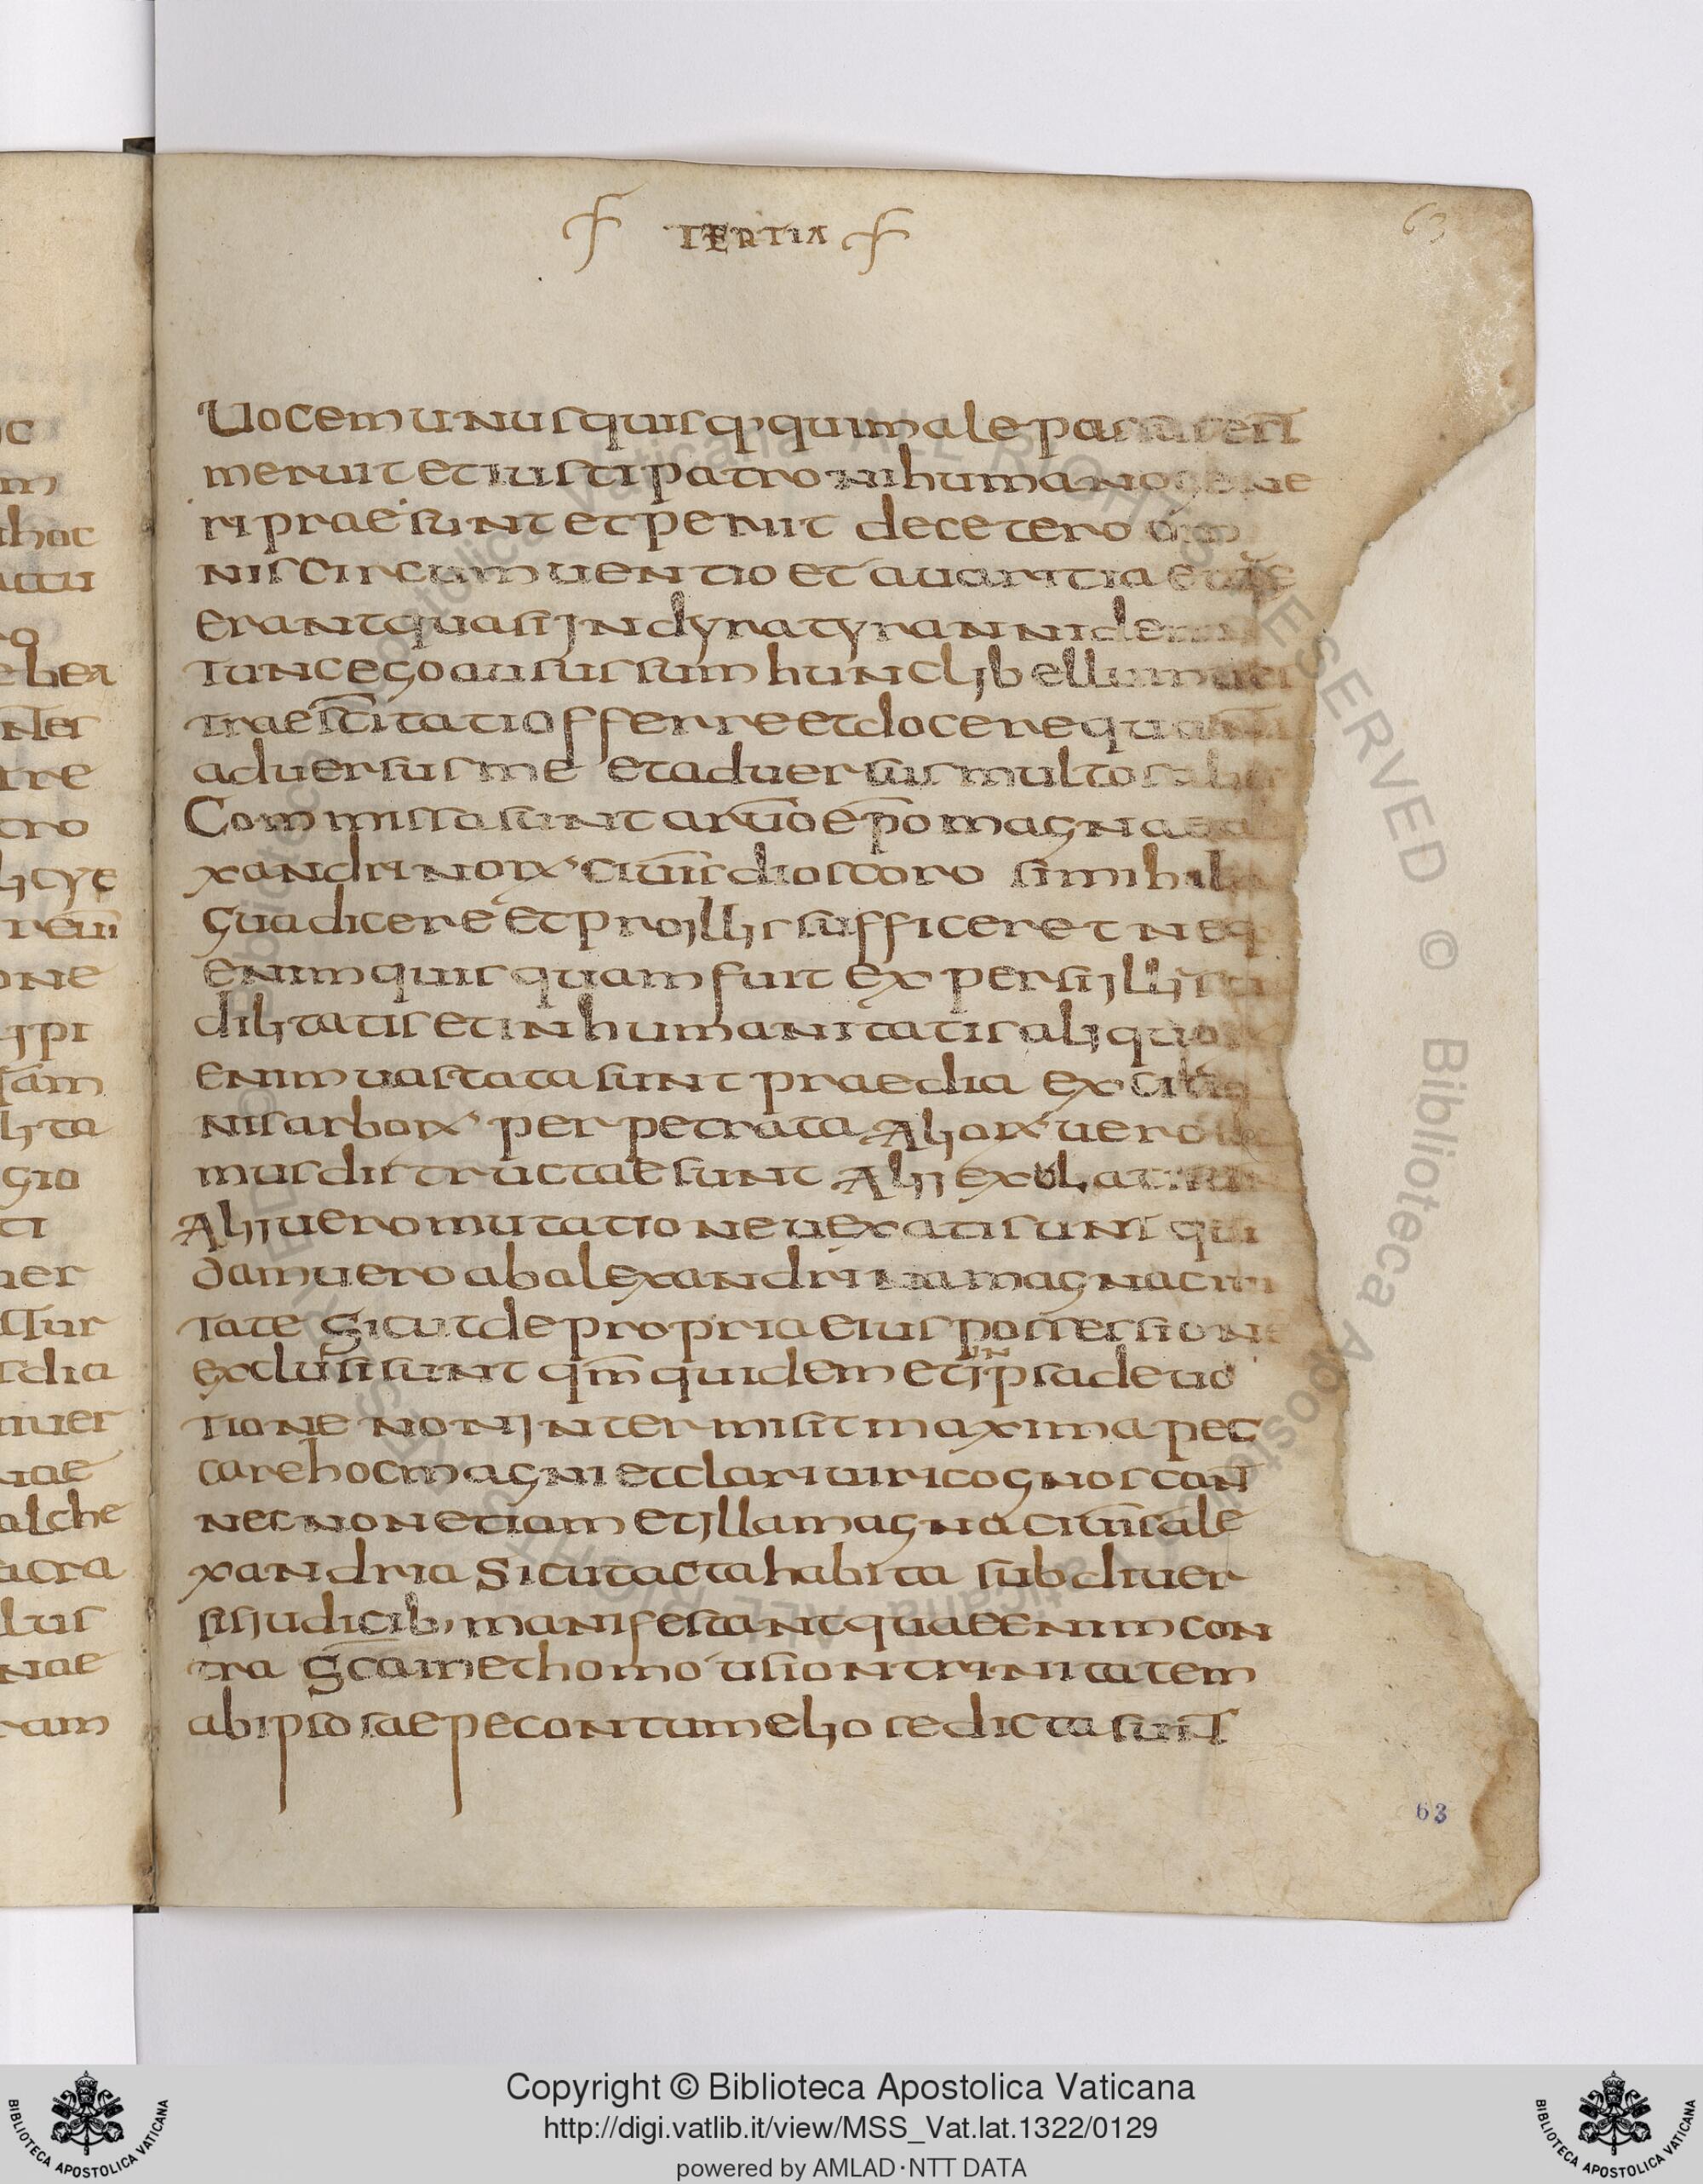 TERTIA
63
Uocem unusquisq· qui male passus est
meruit et iusti patroni humano gene
ri praesunt et periit de cetero om
nis circumuentio et auaritia et
erant quasi in dyra tyrannide
Tunc ego ausus sum hunc libellum ues
trae sc̄itati offerre et docere quanta
aduersus me et aduersus multos alios
Commissa sunt a ruō ep̄o magna
xandrinorum ciuīs dioscoro si mihi lin
gua dicere et pro illis sufficeret neq
enim quisquam fuit expers illius
dilitatis et inhumanitatis aliquorum
enim uastata sunt praedia excisio
nis arborum perpetrata Aliorum uero do
mus distructae sunt Alii exolati sunt
Alii uero mutatione uexati sunt qui
dam uero ab alexandrina magna ciui
tate Sicut de propria eius possessione
exclusi sunt qm̄ quidem et in ipsa deuo
tione non intermisit maxima pec
care hoc magni et clari uiri cognoscan̄
nec non etiam et illa magna ciuīs ale
xandria Sicut acta habita sub diuer
sis iudicib, manifestant quae enim con
tra Sc̄am et homousion trinitatem
ab ipso saepe contumeliose dicta sunt
63
Copyright © Biblioteca Apostolica Vaticana
http://digi.vatlib.it/view/MSS_Vat.lat.1322/0129
powered by AMLAD·NTT DATA